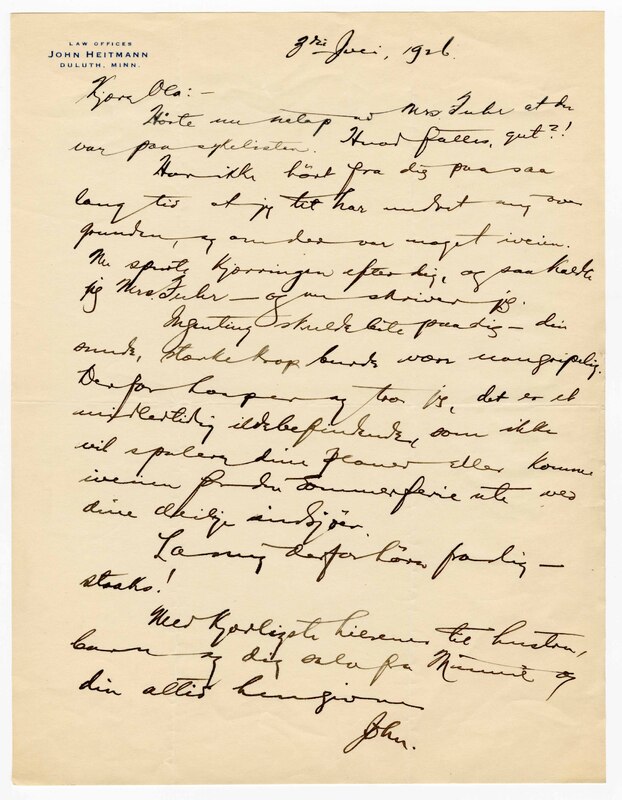 LAW OFFICES
JOHN HEITMANN
DULUTH, MINN.
3die Juni, 1926.
Kjære Ola: —
Hörte nu netop av Mrs. Fuhr at du
var paa sykelisten. Hvad fattes, gut?!
Har ikke hört fra dig paa saa
lang tid at jeg tit har undret mig over
grunden, og om der var noget iveien.
Nu spurte Kjærringen efter dig, og saa kaldte
jeg Mrs. Fuhr — og nu skriver jeg.
Ingenting skulde bite paa dig — din
sunde, stærke krop burde være uangripelig.
Derfor haaper og tror jeg, det er et
midlertidig ildebefindende, som ikke
vil spolere dine planer eller komme
iveien for din sommerferie ute ved
dine deilige indsjöer.
La mig derfor höre fra dig —
straks!
Med kjærligste hilsener til hustru,
barn og dig selv fra Minnie og
din altid hengivne
John.